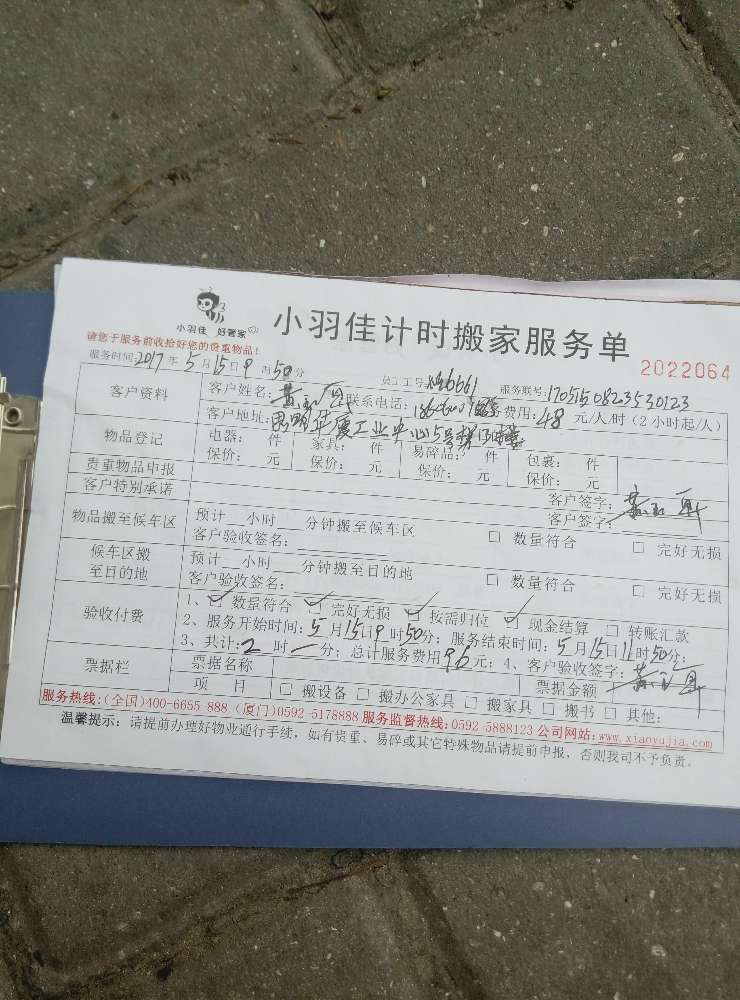 小羽佳 好管家
小羽佳计时搬家服务单
2022064
请您于服务前收拾好您的贵重物品！
服务时间:2017年5月15日9时50分 员工工号: 服务联号:170515082353 0123
客户资料
客户姓名: 联系电话: 服务费用:48元/人/时（2小时起/人）
客户地址: 工业中心5号梯
物品登记
电器: 件 家具: 件 易碎品: 件 包裹: 件
保价: 元 保价: 元 保价: 元 保价: 元
贵重物品申报
客户签字:
客户特别承诺
客户签字:
物品搬至候车区
预计 小时 分钟搬至候车区
客户验收签名: □ 数量符合 □ 完好无损
候车区搬至目的地
预计 小时 分钟搬至目的地
客户验收签名: □ 数量符合 □ 完好无损
验收付费
1、☑ 数量符合 ☑ 完好无损 ☑ 按需归位 ☑ 现金结算 □ 转账汇款
2、服务开始时间: 5月15日9时50分; 服务结束时间: 5月15日11时50分;
3、共计: 2时一分; 总计服务费用96元; 4、客户验收签字:
票据栏
票据名称 票据金额
项 目 □ 搬设备 □ 搬办公家具 □ 搬家具 □ 搬书 □ 其他:
服务热线:(全国)400-6655 888 (厦门)0592-5178888 服务监督热线:0592-5888123 公司网站:www.xiaoyujia.com
温馨提示: 请提前办理好物业通行手续，如有贵重、易碎或其它特殊物品请提前申报，否则我司不予负责。